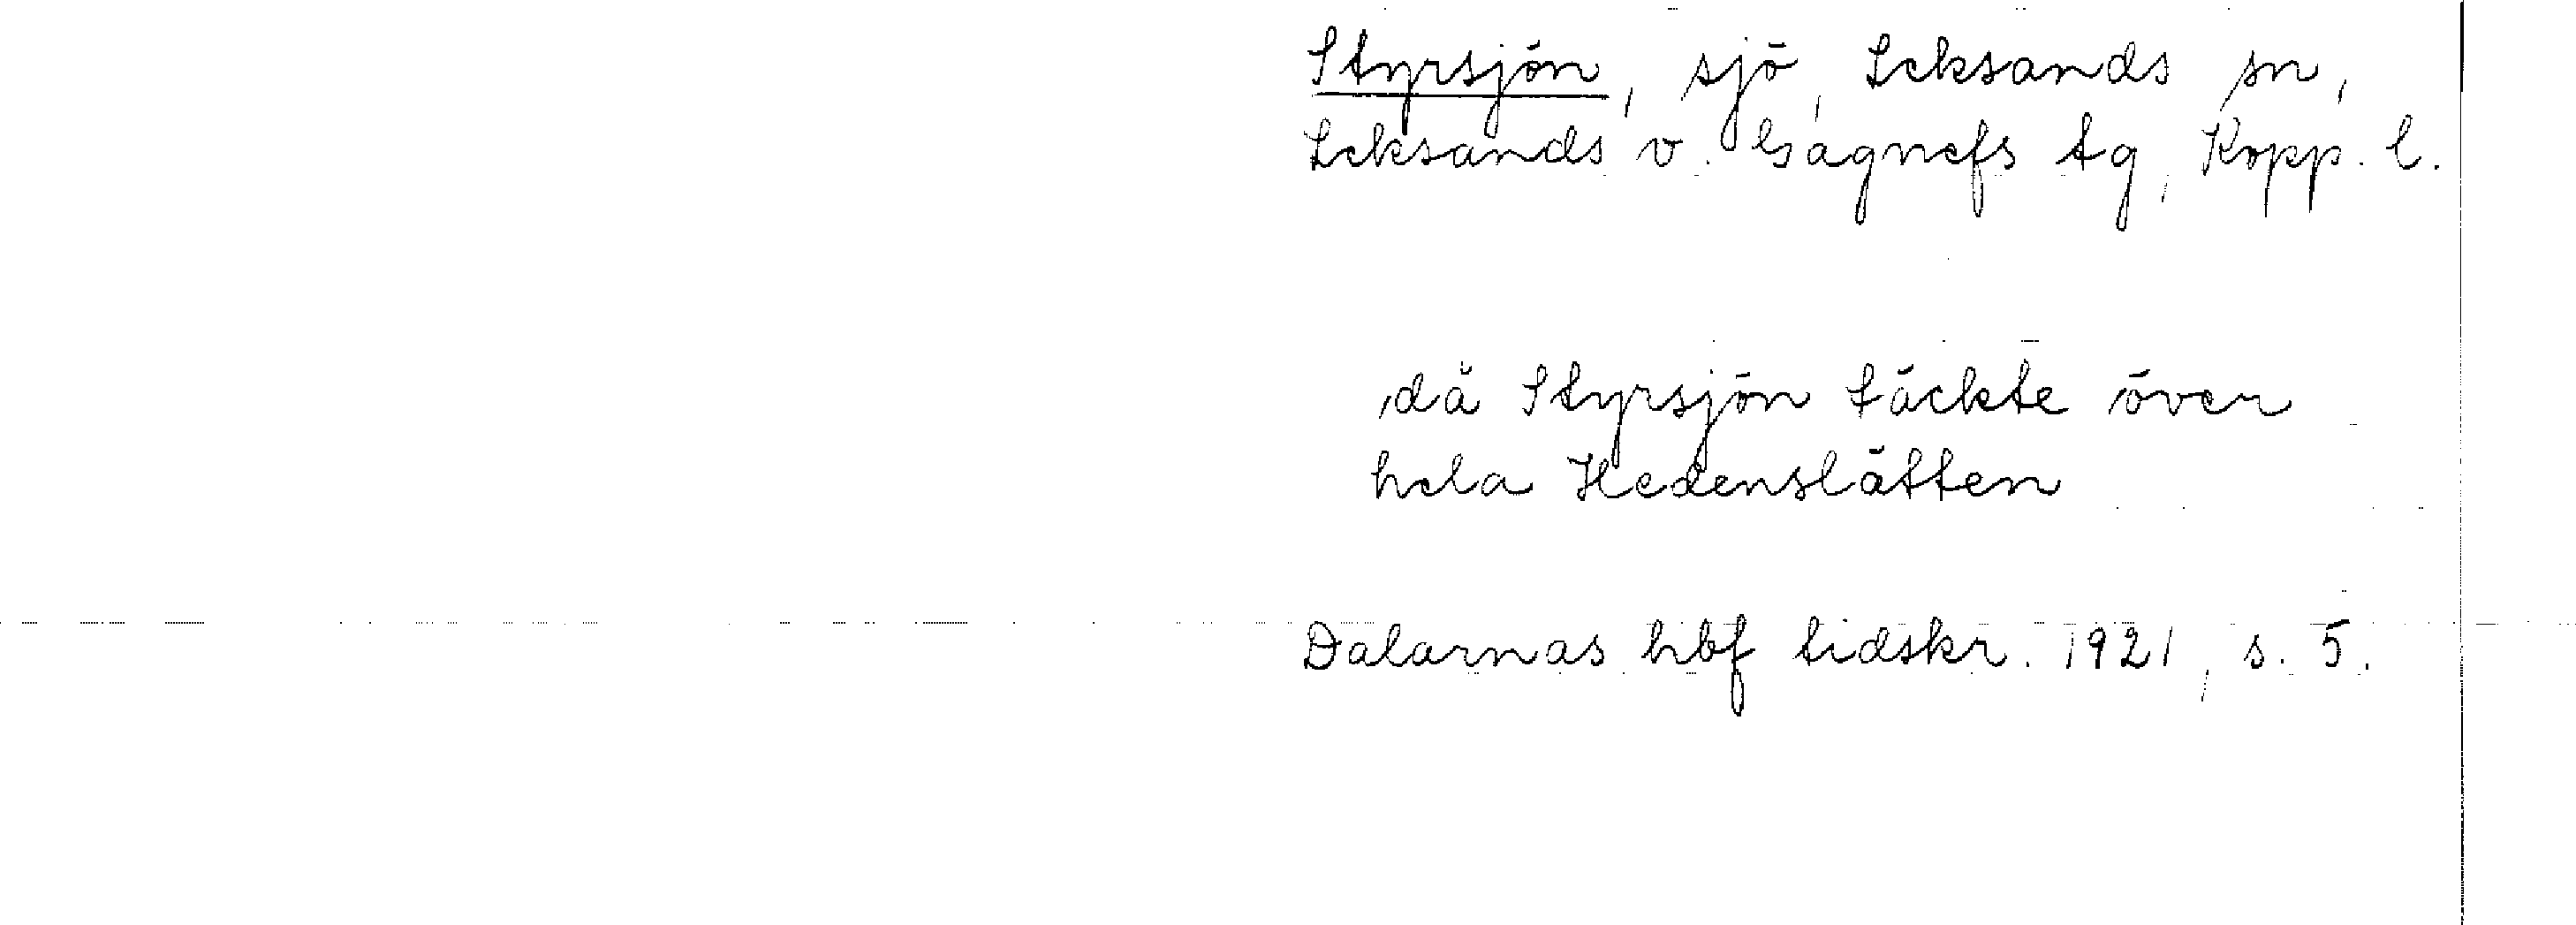 Styrsjön, sjö, Leksands sn,
Leksands v. Gagnefs tg, Kopp. l.
då Styrsjön täckte över
hela Hedenslätten
Dalarnas hbf tidskr. 1921, s. 5.